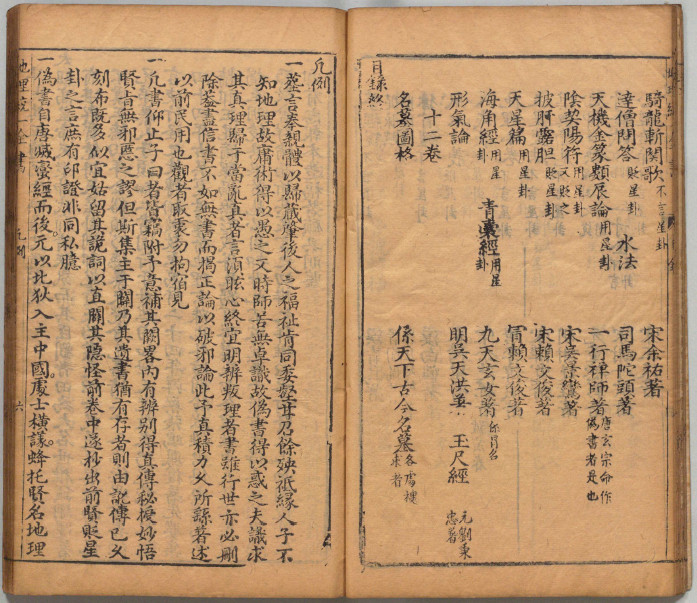 騎龍斬関歌不言星卦 宋余祐著
達僧問答貶星卦 水法 司馬陀頭著
天機金篆類辰論用星卦 一行禅師著唐玄宗命作偽書者是也
陰契陽符用星卦又貶之 宋吳景鸞著
披肝露胆貶星卦 宋賴文俊著
天星篇用星卦 賴文俊著
海角經用星卦 青囊經用星卦 九天玄女著係假名
形氣論 明吳天洪著 玉尺經元劉秉忠著
十二卷
名墓圖格 係天下古今名墓各處搜來者
目錄終
凡例
一葬言奉親體以歸藏肇後人之福祉肯同委壑毋召餘殃祗緣人子不
知地理故庸術得以愚之又時師苦無卓識故偽書得以惑之夫識求
其真理歸于當亂真者言湏眩心終宜明辨叛理者書雖行世亦必刪
除葢盡信書不如無書而揭正論以破邪論此予真積力久所繇著述
以前民用也觀者取衷勿拘舊見
一凡書仰止子曰者皆竊附予意補其闕畧內有辨别得真傳秘授妙悟
賢者無邪慝之謬但斯集主于闢乃其遺書猶有存者則由訛傳已久
刻布既多似宜姑留其說詞以直闢其隱怪前卷中遂抄出前賢貶星
卦之言庶有印證非同私臆
一偽書自唐滅蠻經而後元以北狄入主中國處士橫議蜂托賢名地理
地理 一全書 凡例 六